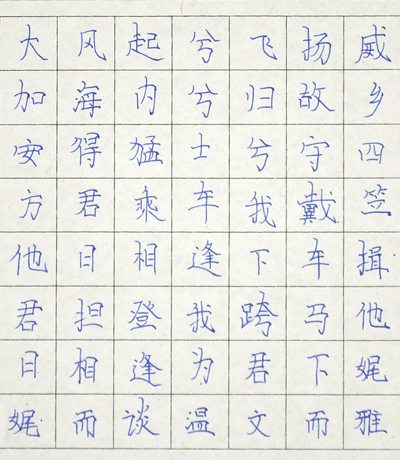 大风起兮飞扬威
加海内兮归故乡
安得猛士兮守四
方君乘车我戴笠
他日相逢下车揖
君担登我跨马他
日相逢为君下娓
娓而谈温文而雅